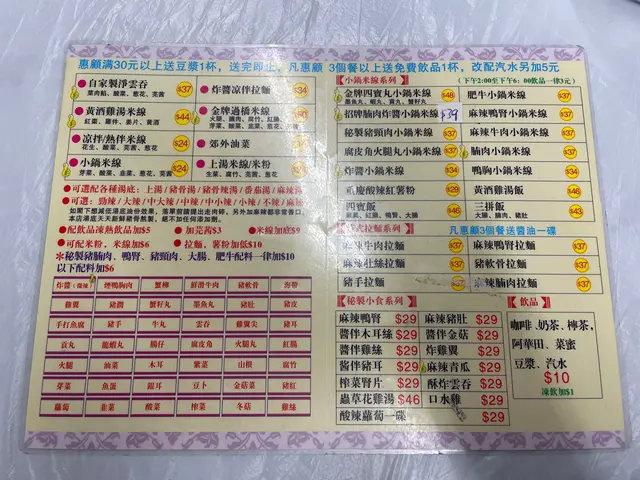 惠顧滿30元以上送豆漿1杯，送完即止，凡惠顧 3個餐以上送免費飲品1杯，改配汽水另加5元
自家製淨雲吞 $37
菜肉餡、酸菜、葱花、芫茜
炸醬涼伴拉麵 $34
黃酒雞湯米線 $44
金牌過橋米線
涼拌/熱伴米線 $24
花生、酸菜、芫茜、葱花
郊外油菜
小鍋米線 $24
芽菜、酸菜、韭菜、葱花、芫茜
上湯米線/米粉
●可選配各種湯底：上湯/豬骨湯/豬骨辣湯/番茄湯/麻辣湯
●可選：勁辣/大辣/中大辣/中辣/中小辣/小辣/辣/麻辣
●配飲品凍熱飲品加$5
●加芫茜$3
●米線加底$9
●可配米粉，米線加$6
●拉麵，薯粉加低$10
*秘製豬腩肉、鴨腎、豬頸肉、大腸、肥牛配料一律加$10
以下配料加$6
炸醬(微辣) 煙鴨胸肉 蟹柳 鮮滑牛肉 豬軟骨 海帶
雞翼 豬潤 蟹籽丸 墨魚丸 豬肚 豬皮
手打魚腐 豬手 牛丸 雲吞 雞翼尖 豬耳
貢丸 龍蝦丸 腸仔 腐皮角 火腿丸 豬紅
火腿 油菜 木耳 紫菜 山根 腐竹
芽菜 魚蛋 銀耳 豆卜 金菇菜 豬紅
蘿蔔 韭菜 酸菜 榨菜 冬菇 雞絲
小鍋米線系列
(下午2:00至下午6:00飲品一律3元)
金牌四寶丸小鍋米線 $48
墨魚丸、蝦丸、貢丸、蟹籽丸
肥牛小鍋米線 $37
招牌腩肉炸醬小鍋米線 $39
麻辣鴨腎小鍋米線 $37
秘製豬頸肉小鍋米線 $37
麻辣牛肉小鍋米線 $37
腐皮角火腿丸小鍋米線 $37
腩肉小鍋米線 $37
炸醬小鍋米線 $34
鴨胸小鍋米線 $37
重慶酸辣紅薯粉 $29
黃酒雞湯飯 $46
四寶飯 $46
三拼飯 $43
大腸、腩肉、豬肚
式拉麵系列
凡惠顧3個餐送醬油一碟
麻辣牛肉拉麵 $37
麻辣鴨腎拉麵 $37
麻辣肚絲拉麵 $37
豬軟骨拉麵 $37
豬手拉麵 $37
麻辣腩肉拉麵 $37
秘製小食系列
麻辣鴨腎 $29
麻辣豬肚 $29
醬伴木耳絲 $29
醬伴金菇 $29
醬伴雞絲 $29
炸雞翼 $29
醬伴豬耳 $29
麻辣青瓜 $29
榨菜腎片 $29
酥炸雲吞 $29
蟲草花雞湯 $46
口水雞 $29
酸辣蘿蔔一碟 $29
飲品
咖啡、奶茶、檸茶，
阿華田、菜蜜
豆漿、汽水
$10
凍飲加$1